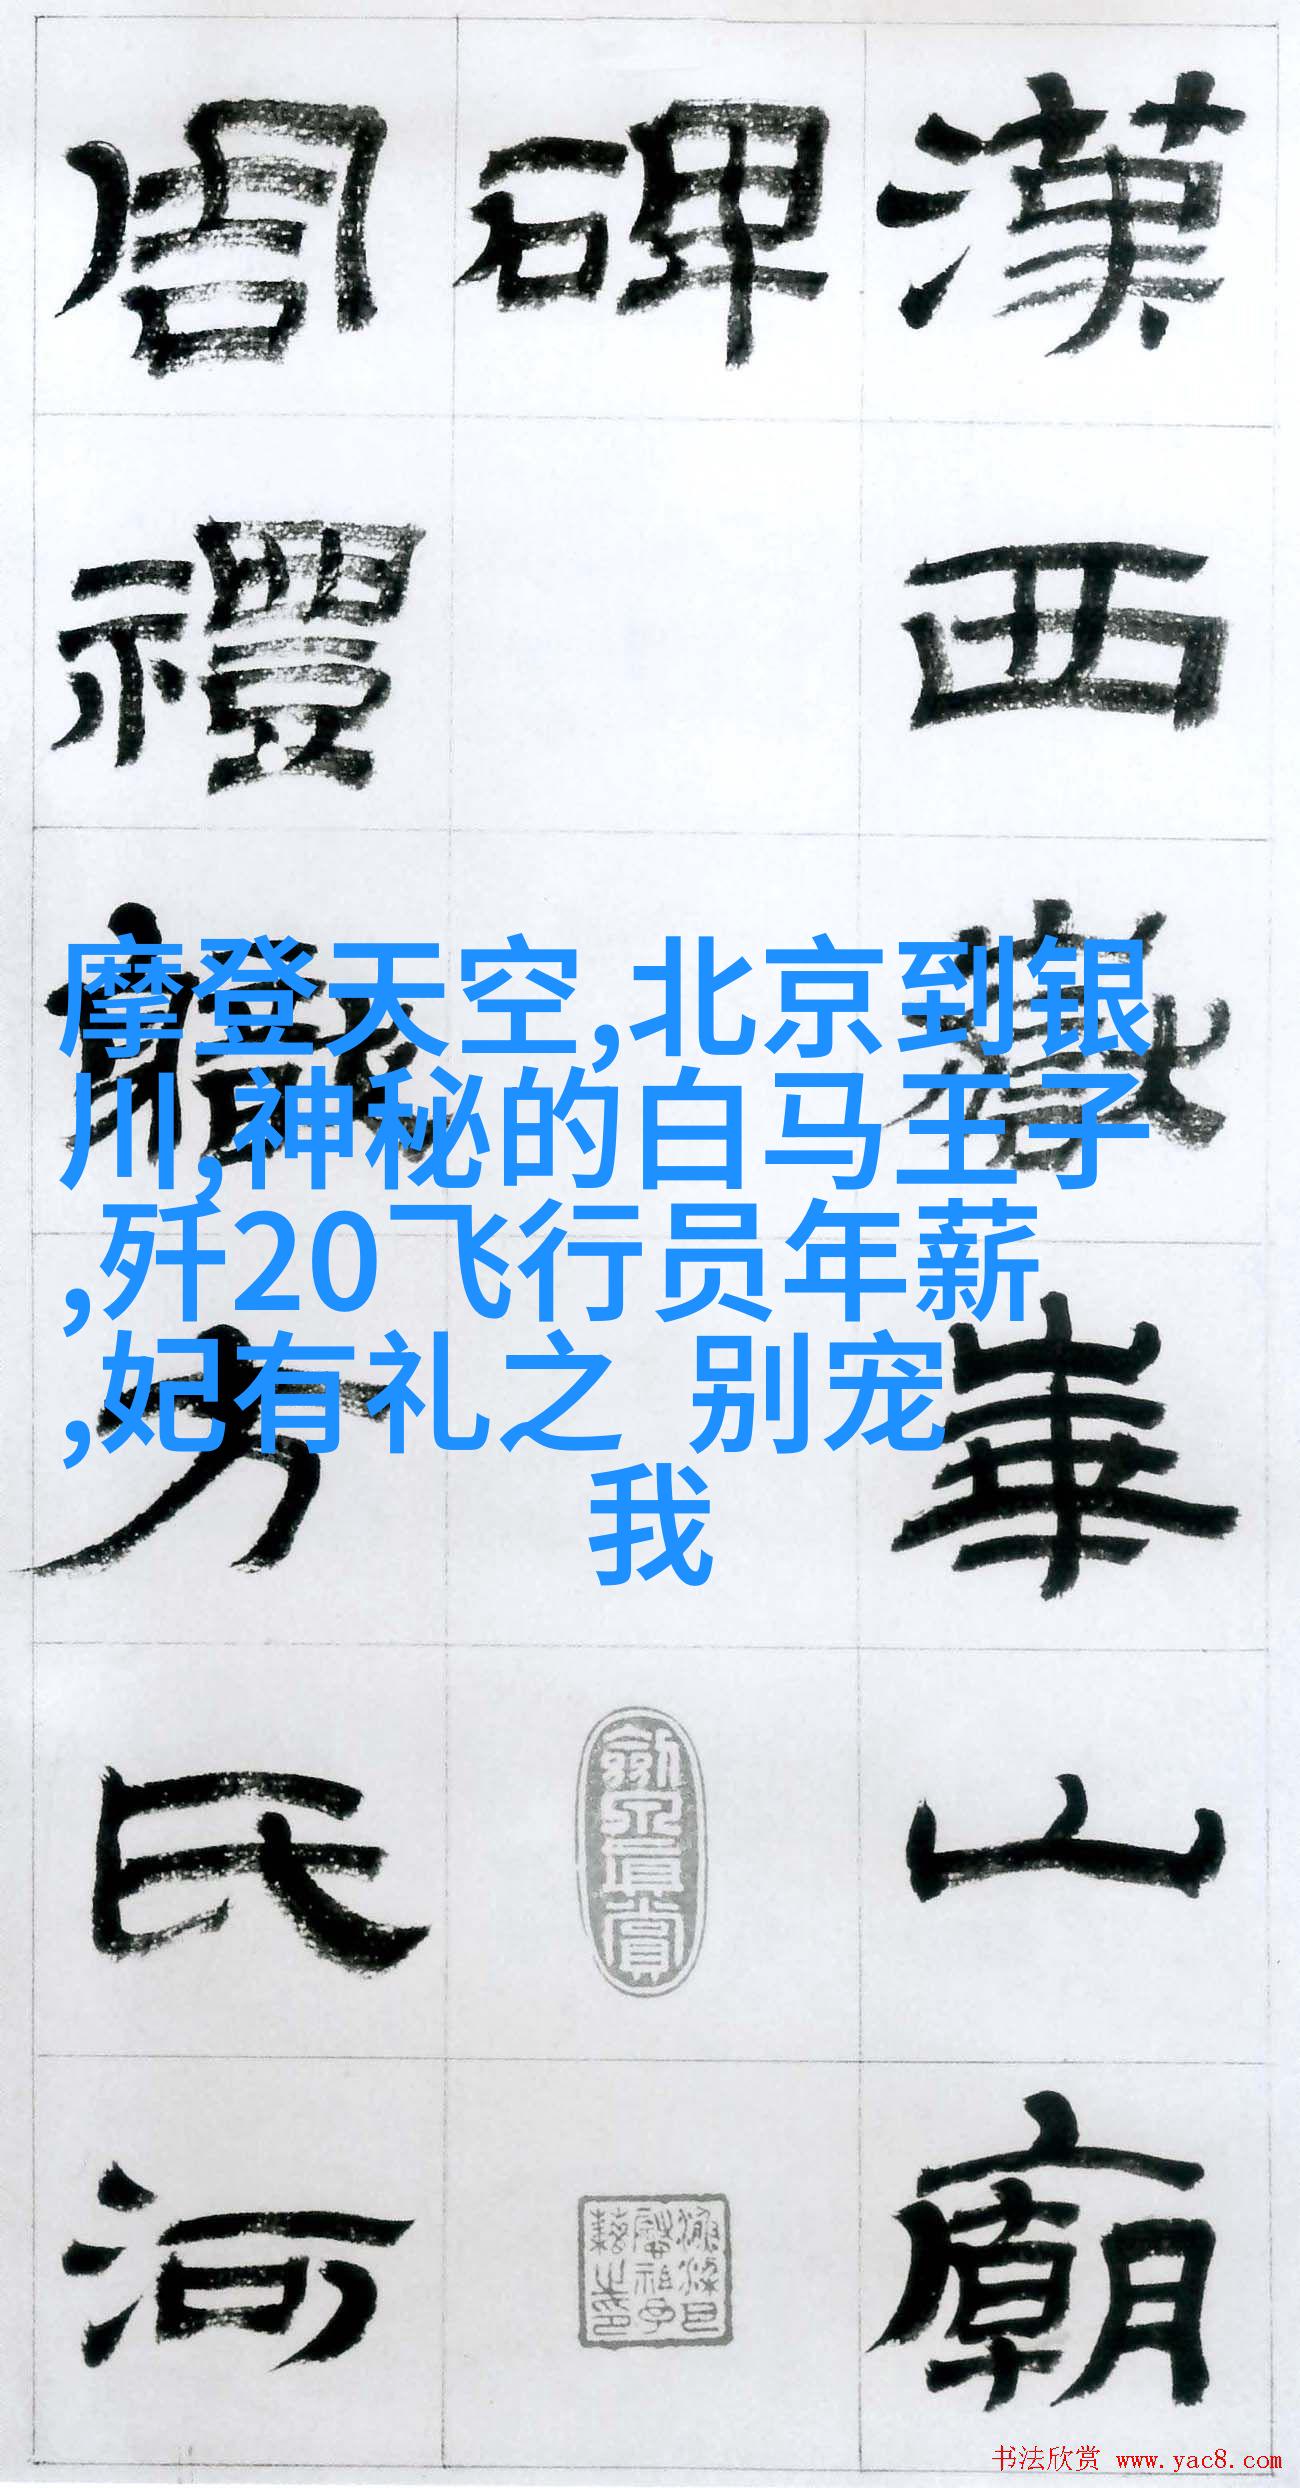 漢西嶽華山廟
碑
周禮職方氏河
摩登天空,北京到银
川,神秘的白马王子
,歼20飞行员年薪
,妃有礼之 别宠
我
书法欣赏 www.yac8.com